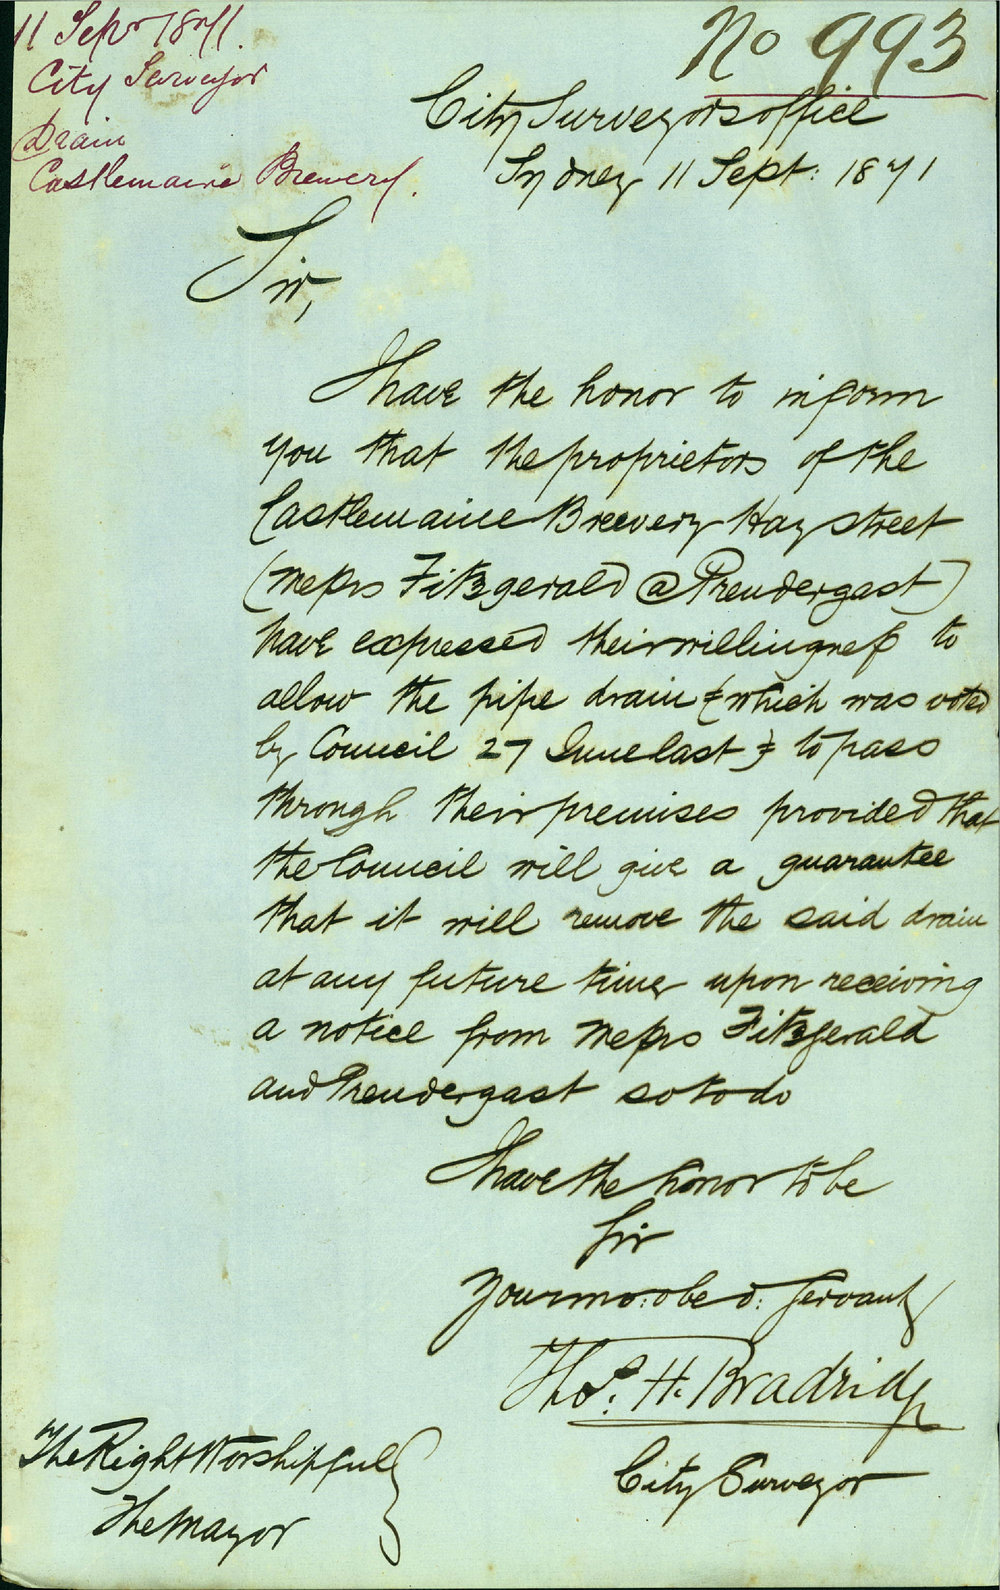 11 Sepr 1871.
City Surveyor
Drain
Castlemaine Brewery.
No 993
City Surveyors office
Sydney 11 Sept: 1871
Sir,
I have the honor to inform
you that the proprietors of the
Castlemaine Brewery Hay street
(Messrs Fitzgerald @ Prendergast)
have expressed their willingness to
allow the pipe drain (which was voted
by Council 27 June last) to pass
through their premises provided that
the Council will give a guarantee
that it will remove the said drain
at any future time upon receiving
a notice from Messrs Fitzgerald
and Prendergast so to do
I have the honor to be
Sir
Your mo: obed: Servant
Thos. H. Bradridge
City Surveyor
The Right Worshipful
The Mayor